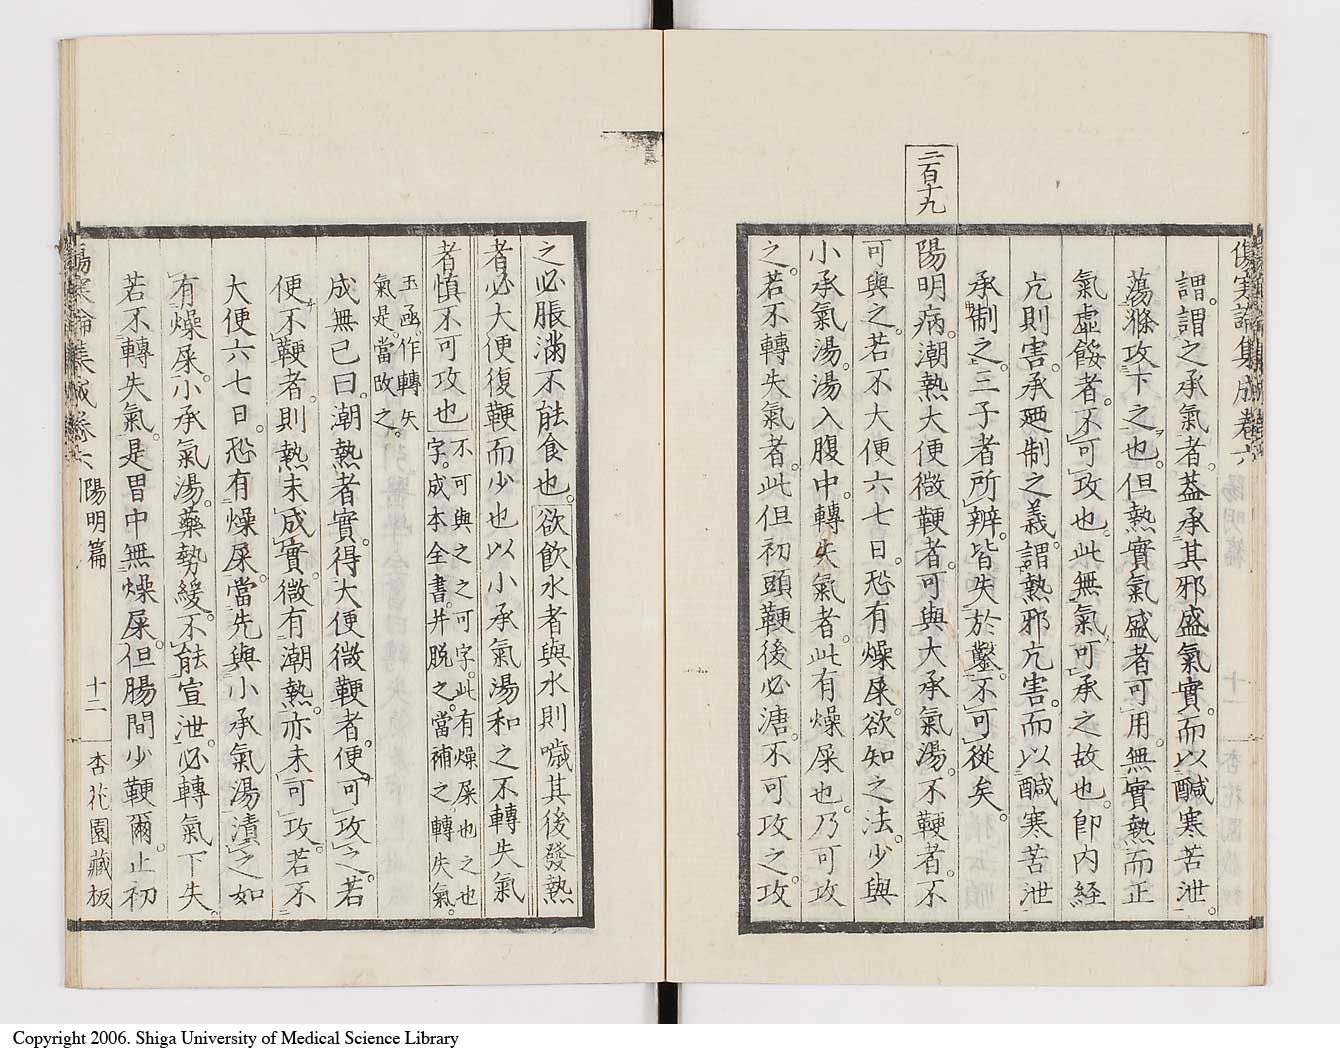 傷寒論集成卷六
謂謂之承氣者葢承其邪盛氣實而以鹹寒苦泄
蕩滌攻下之也但熱實氣盛者可用無實熱而正
氣虛餒者不可攻也此無氣可承之故也卽内経
亢則害承廼制之義謂熱邪亢害而以鹹寒苦泄
承制之三子者所辨皆失於鑿不可從矣
二百十九
陽明病潮熱大便微鞕者可與大承氣湯不鞕者不
可與之若不大便六七日恐有燥屎欲知之法少與
小承氣湯湯入腹中轉失氣者此有燥屎也乃可攻
之若不轉失氣者此但初頭鞕後必溏不可攻之攻
之必脹滿不能食也欲飲水者與水則噦其後發熱
者必大便復鞕而少也以小承氣湯和之不轉失氣
者慎不可攻也
不可與之之可字此有燥屎也之也
字成本全書幷脱之當補之轉失氣
玉函作轉矢
氣是當改之
成無己曰潮熱者實得大便微鞕者便可攻之若
便不鞕者則熱未成實微有潮熱亦未可攻若不
大便六七日恐有燥屎當先與小承氣湯漬之如
有燥屎小承氣湯藥勢緩不能宣泄必轉氣下失
若不轉失氣是胃中無燥屎但腸間少鞕爾止初
傷寒論集成卷六
陽明篇
十二
杏花園藏板
Copyright 2006. Shiga University of Medical Science Library